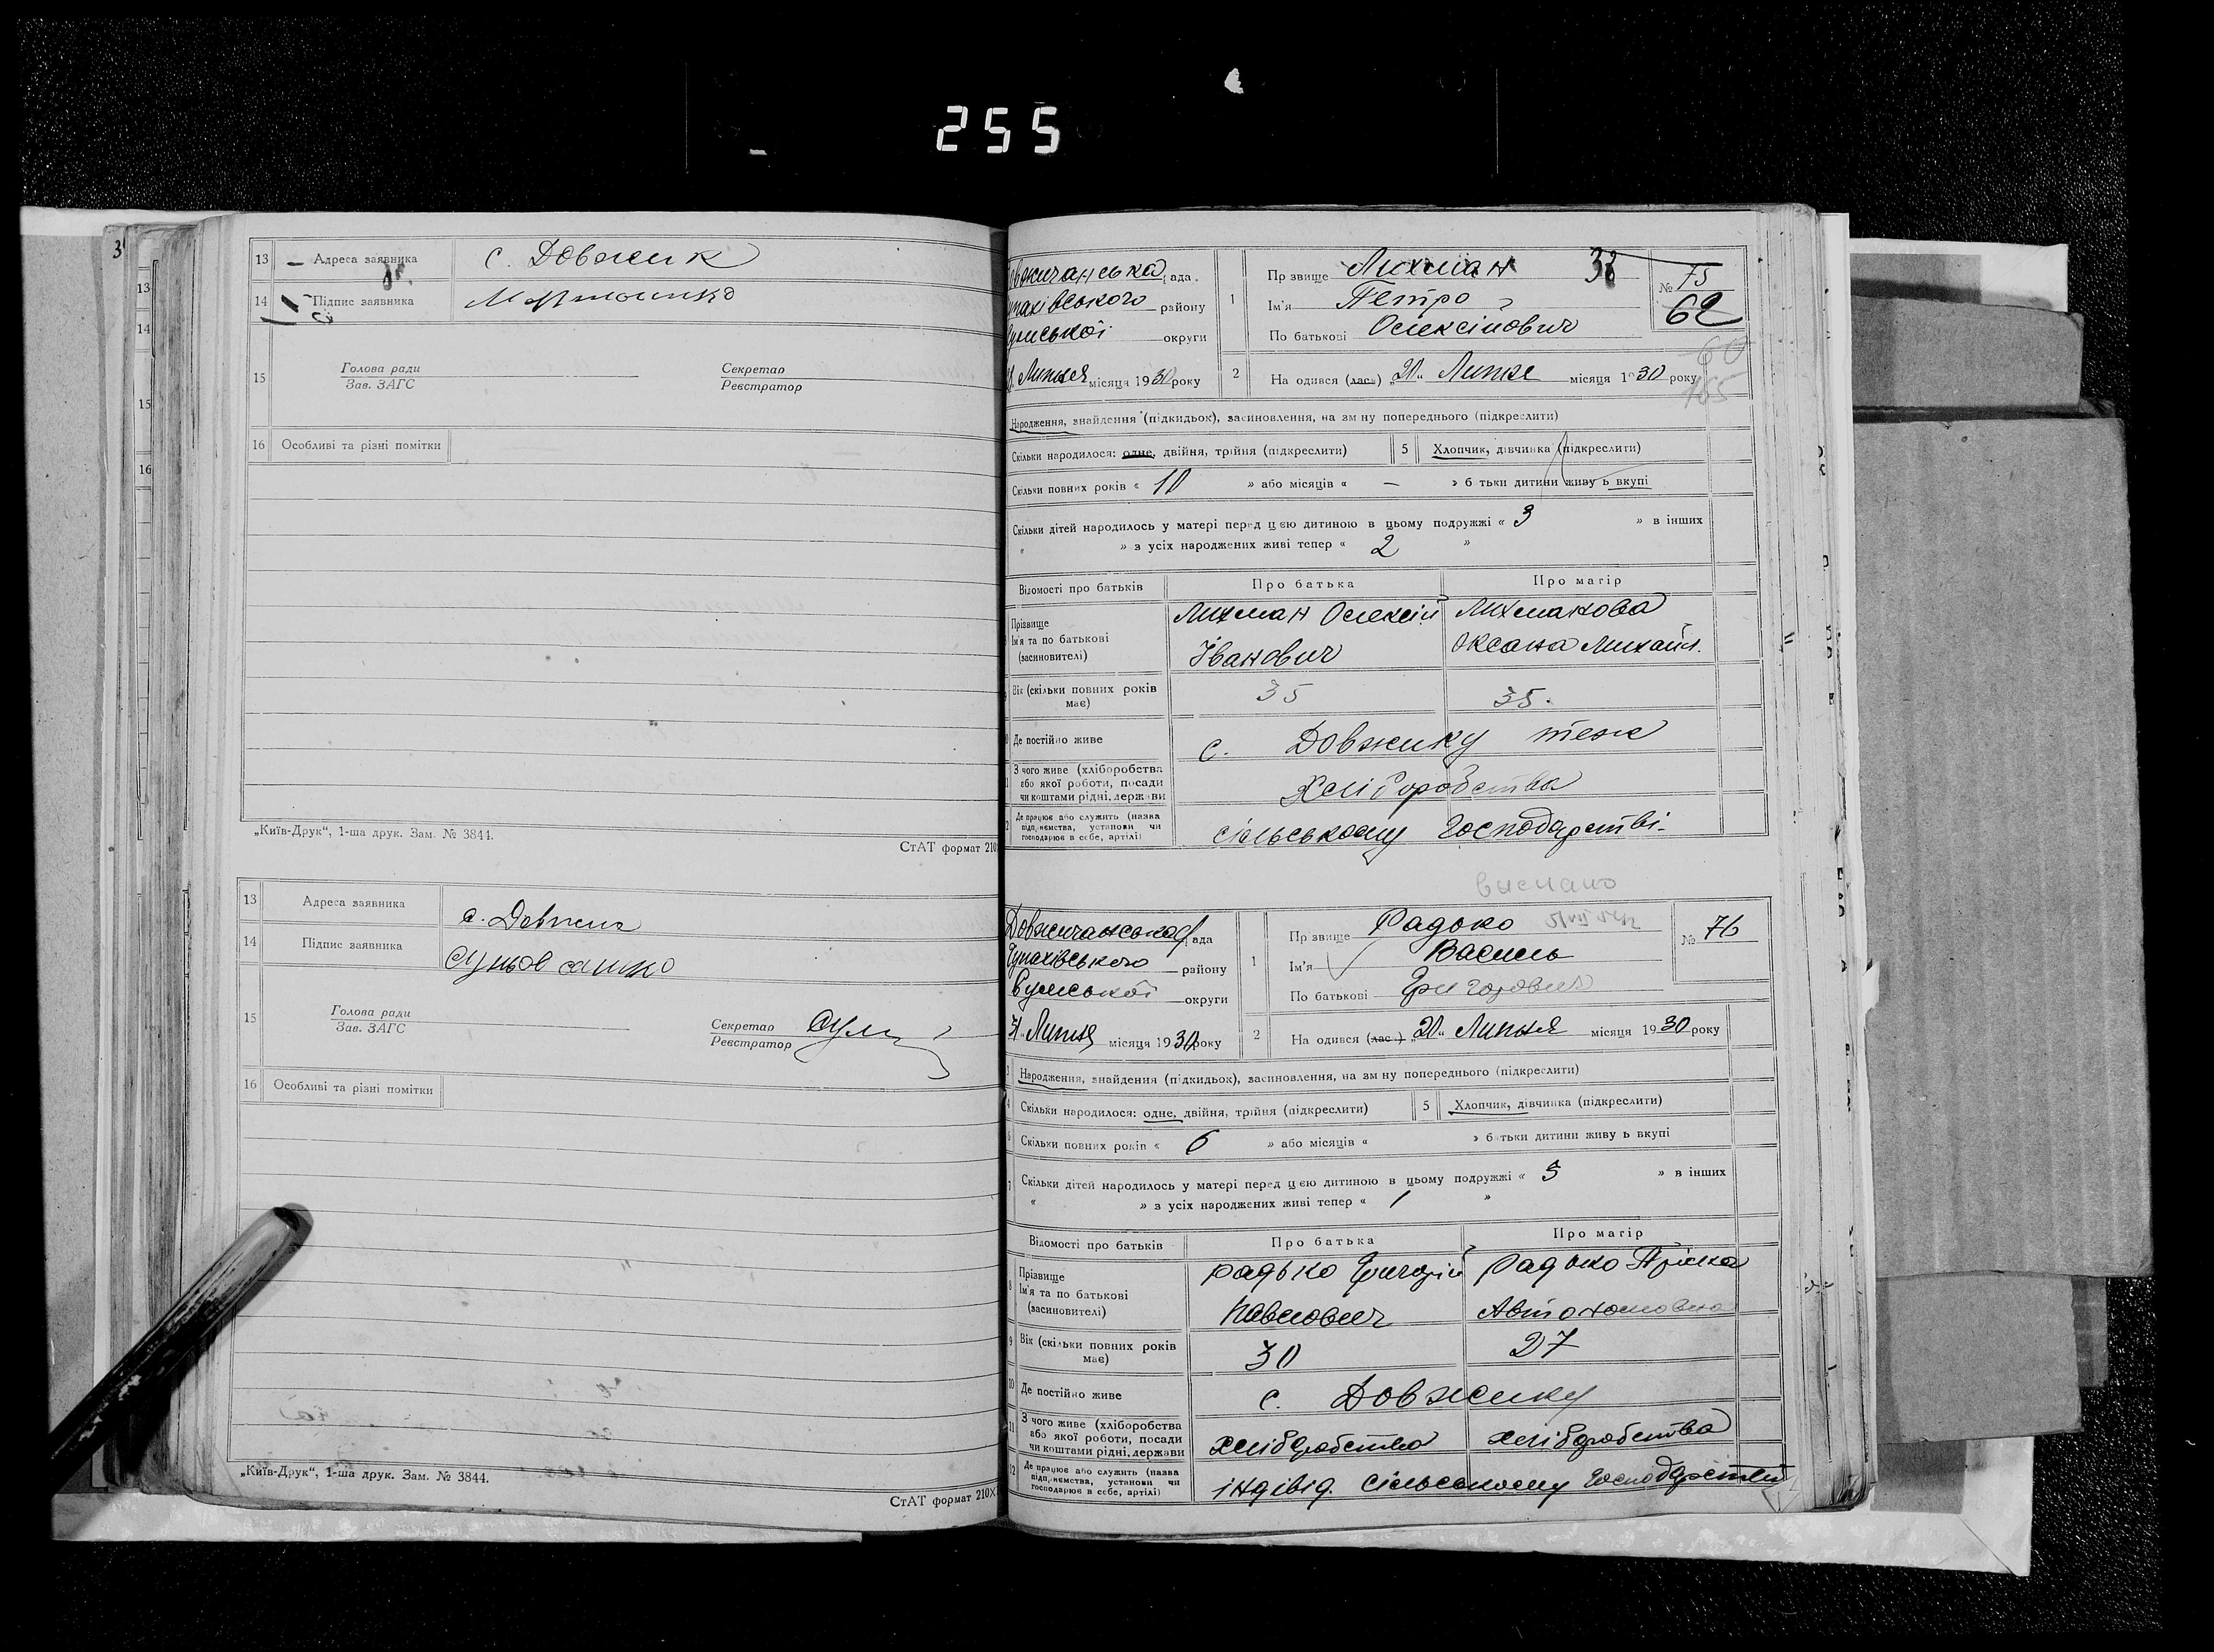 255
3
13
14
15
16
13 Адреса заявника с. Довжик
14 Підпис заявника
15 Голова ради Секретар
Зав. ЗАГС Реєстратор
16 Особливі та різні помітки
„Київ-Друк“, 1-ша друк. Зам. № 3844.
СтАТ формат 210
13 Адреса заявника с. Довжик
14 Підпис заявника
15 Голова ради Секретар
Зав. ЗАГС Реєстратор
16 Особливі та різні помітки
„Київ-Друк“, 1-ша друк. Зам. № 3844.
СтАТ формат 210×
овжичанська рада
упахівського району
умської округи
Липня місяця 1930 року
1 Прізвище Лихман 38
Ім'я Петро
По батькові Олексійович
№ 75
62
60
165
2 Народився (лась) „20“ Липня місяця 1930 року
Народження, знайдення (підкидьок), засиновлення, на зміну попереднього (підкреслити)
Скільки народилося: одне, двійня, трійня (підкреслити) 5 Хлопчик, дівчинка (підкреслити)
Скільки повних років « 10 » або місяців « — » батьки дитини живуть вкупі
Скільки дітей народилось у матері перед цією дитиною в цьому подружжі « 3 » в інших
« » з усіх народжених живі тепер « 2 »
Відомості про батьків Про батька Про матір
Прізвище Лихман Олексій Лихманова
Ім'я та по батькові Іванович Оксана Михайл.
(засиновителі)
Вік (скільки повних років має) 35 35.
Де постійно живе с. Довжику теж
З чого живе (хліборобства
або якої роботи, посади Хліборобства
чи коштами рідні, держави
Де працює або служить (назва
підприємства, установи чи сільському господарстві.
господарює в себе, артілі)
вислано
Довжичанська рада
Чупахівського району
Сумської округи
31 Липня місяця 1930 року
1 Прізвище Радько
Ім'я Василь
По батькові Григорович
№ 76
2 Народився (лась) „20“ Липня місяця 1930 року
3 Народження, знайдення (підкидьок), засиновлення, на зміну попереднього (підкреслити)
4 Скільки народилося: одне, двійня, трійня (підкреслити) 5 Хлопчик, дівчинка (підкреслити)
6 Скільки повних років « 6 » або місяців « » батьки дитини живуть вкупі
7 Скільки дітей народилось у матері перед цією дитиною в цьому подружжі « 3 » в інших
« » з усіх народжених живі тепер « 1 »
Відомості про батьків Про батька Про матір
8 Прізвище Радько Григорій Радько Пріська
Ім'я та по батькові Павлович Автономовна
(засиновителі)
9 Вік (скільки повних років має) 30 27
10 Де постійно живе с. Довжику
11 З чого живе (хліборобства
або якої роботи, посади хліборобства хліборобства
чи коштами рідні, держави
12 Де працює або служить (назва
підприємства, установи чи індівід. сільському господарстві
господарює в себе, артілі)